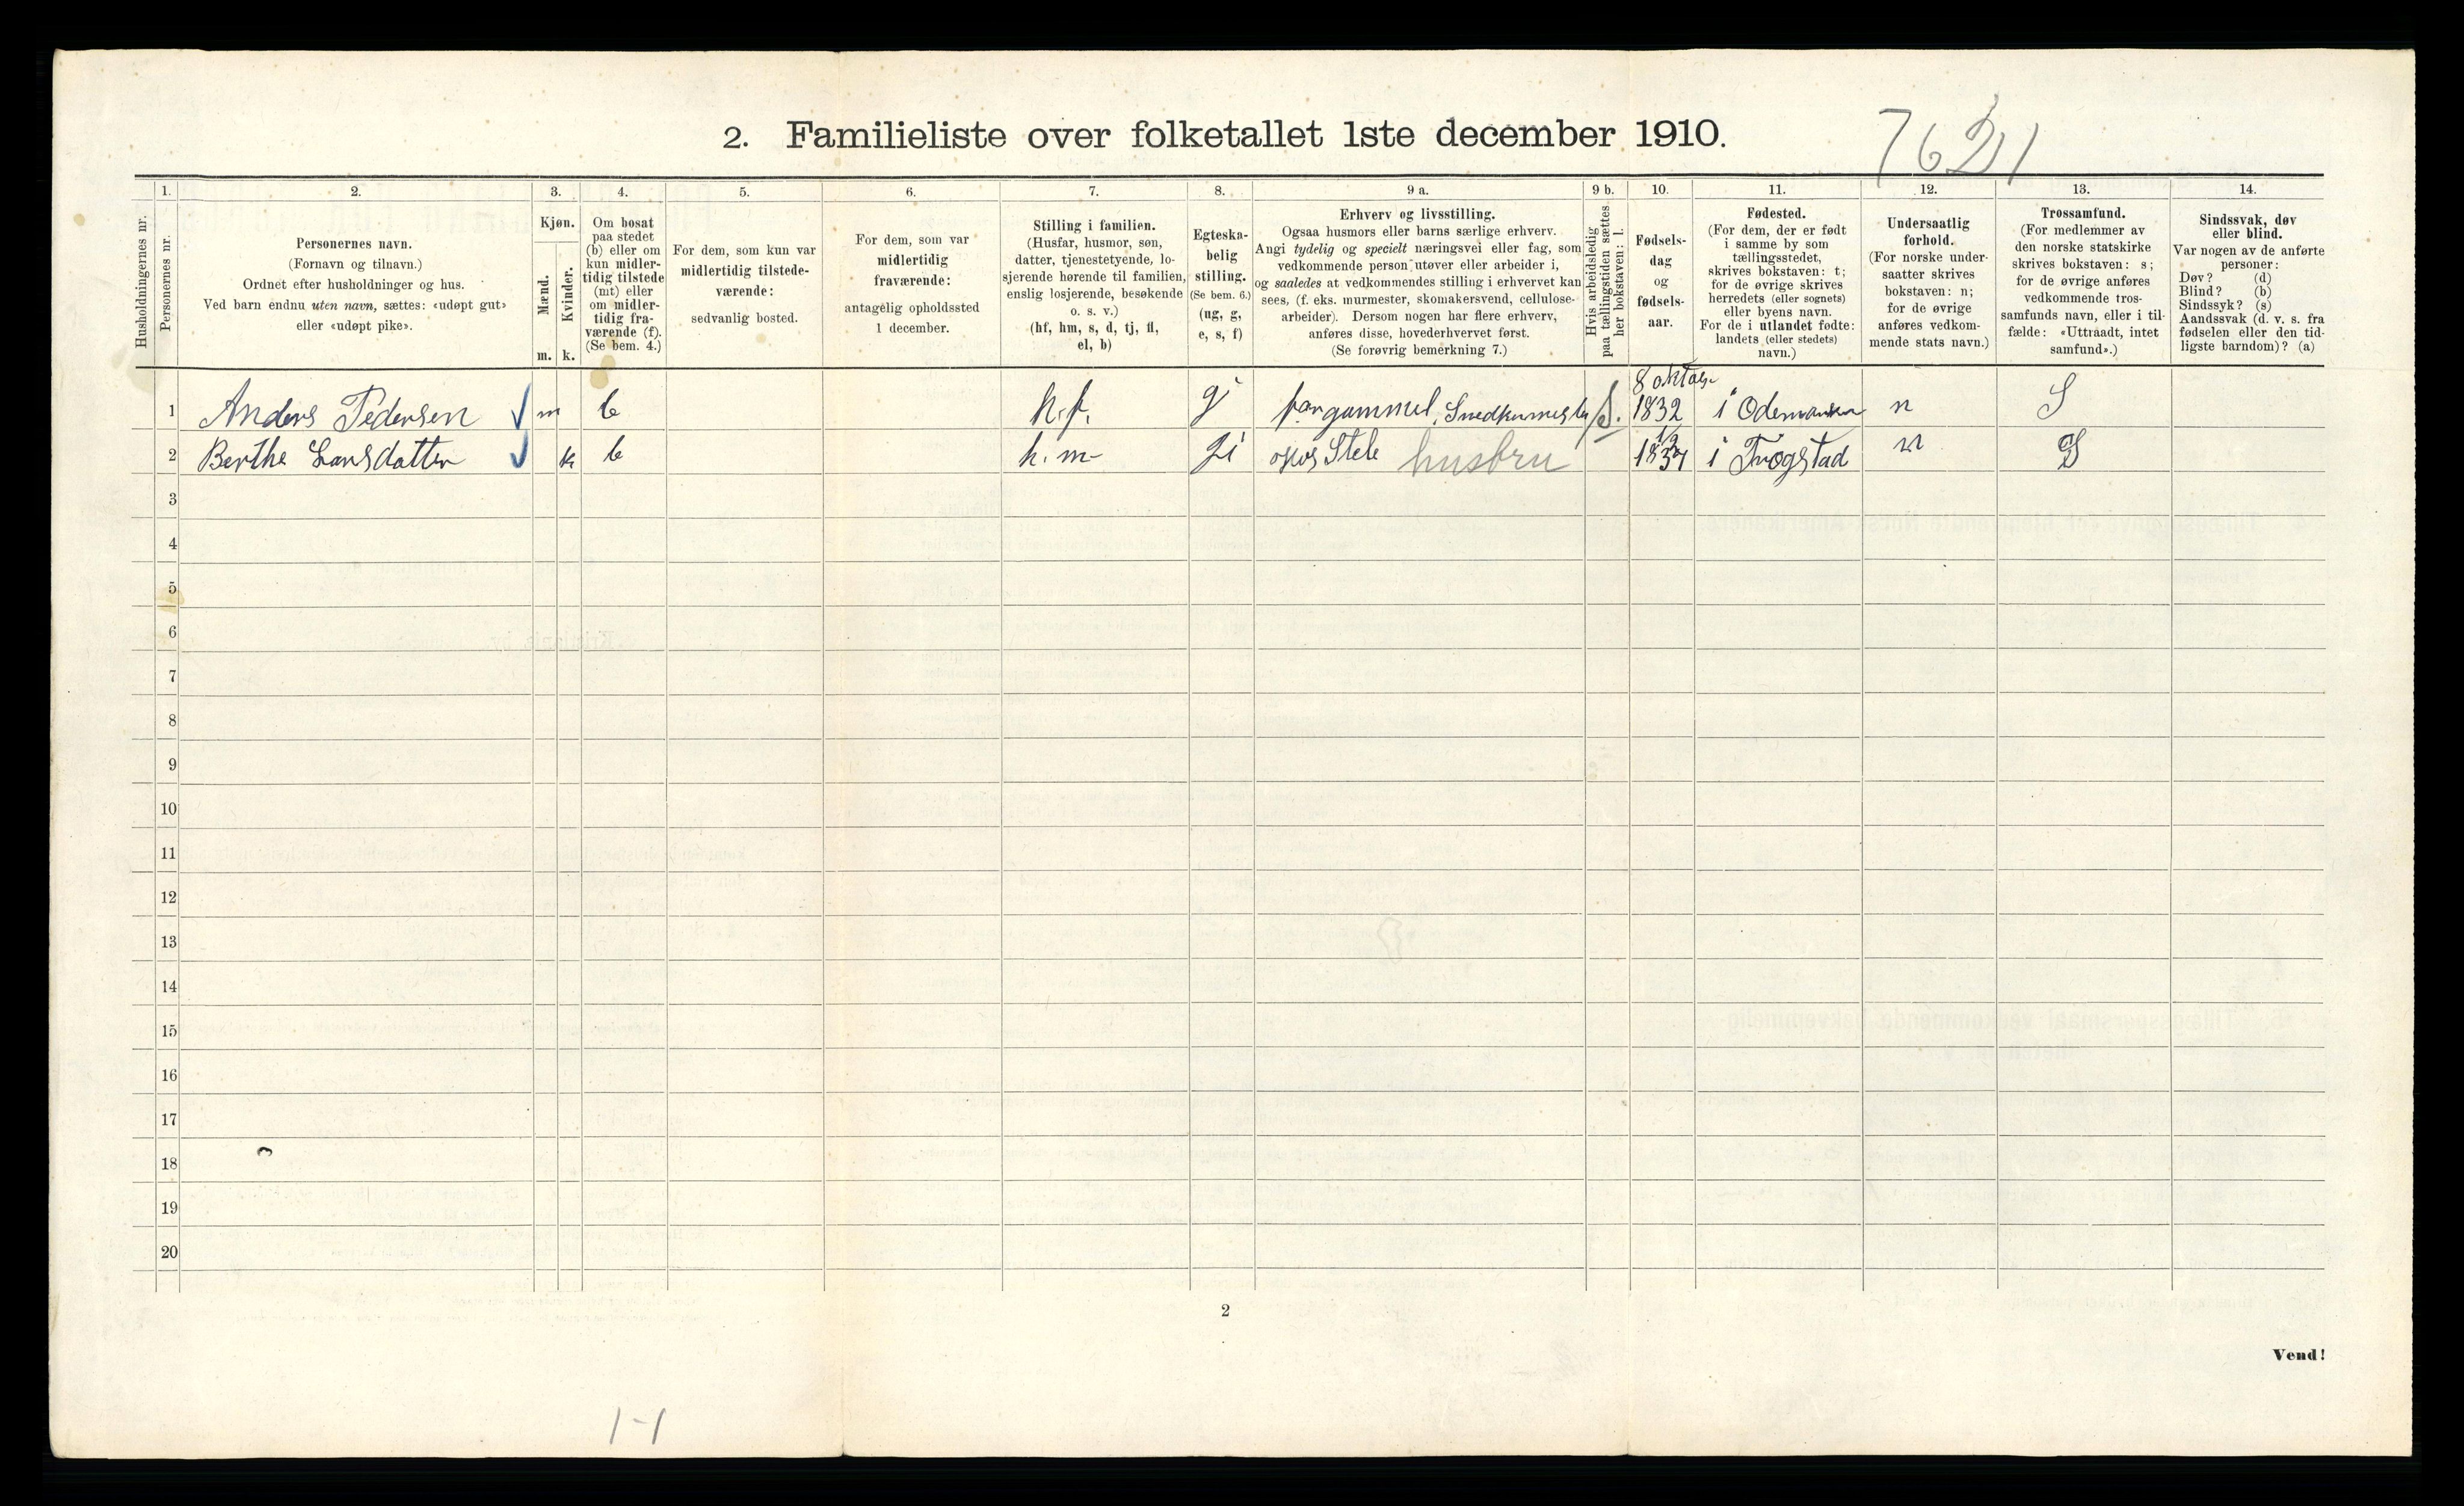 2. Familieliste over folketallet 1ste december 1910.
1. 2. 3. 4. 5. 6. 7. 8. 9 a. 9 b. 10. 11. 12. 13. 14.
Husholdningernes nr.
Personernes nr.
Personernes navn.
(Fornavn og tilnavn.)
Ordnet efter husholdninger og hus.
Ved barn endnu uten navn, sættes: «udøpt gut»
eller «udøpt pike».
Kjøn.
Mænd.
Kvinder.
m. k.
Om bosat
paa stedet
(b) eller om
kun midler-
tidig tilstede
(mt) eller
om midler-
tidig fra-
værende (f).
(Se bem. 4.)
For dem, som kun var
midlertidig tilstede-
værende:
sedvanlig bosted.
For dem, som var
midlertidig
fraværende:
antagelig opholdssted
1 december.
Stilling i familien.
(Husfar, husmor, søn,
datter, tjenestetyende, lo-
sjerende hørende til familien,
enslig losjerende, besøkende
o. s. v.)
(hf, hm, s, d, tj, fl,
el, b)
Egteska-
belig
stilling.
(Se bem. 6.)
(ug, g,
e, s, f)
Erhverv og livsstilling.
Ogsaa husmors eller barns særlige erhverv.
Angi tydelig og specielt næringsvei eller fag, som
vedkommende person utøver eller arbeider i,
og saaledes at vedkommendes stilling i erhvervet kan
sees, (f. eks. murmester, skomakersvend, cellulose-
arbeider). Dersom nogen har flere erhverv,
anføres disse, hovederhvervet først.
(Se forøvrig bemerkning 7.)
Hvis arbeidsledig
paa tællingstiden sættes
her bokstaven: l.
Fødsels-
dag
og
fødsels-
aar.
Fødested.
(For dem, der er født
i samme by som
tællingsstedet,
skrives bokstaven: t;
for de øvrige skrives
herredets (eller sognets)
eller byens navn.
For de i utlandet fødte:
landets (eller stedets)
navn.)
Undersaatlig
forhold.
(For norske under-
saatter skrives
bokstaven: n;
for de øvrige
anføres vedkom-
mende stats navn.)
Trossamfund.
(For medlemmer av
den norske statskirke
skrives bokstaven: s;
for de øvrige anføres
vedkommende tros-
samfunds navn, eller i til-
fælde: «Uttraadt, intet
samfund».)
Sindssvak, døv
eller blind.
Var nogen av de anførte
personer:
Døv? (d)
Blind? (b)
Sindssyk? (s)
Aandssvak (d. v. s. fra
fødselen eller den tid-
ligste barndom)? (a)
1 Anders Pedersen m b h.f. g forgammel, Snedkermester 8 oktober 1832 i Ødemarken n S
2 Berthe Larsdatter k b h.m gi husfru i Trøgstad n S
3
4
5
6
7
8
9
10
11
12
13
14
15
16
17
18
19
20
2
Vend!
1-1